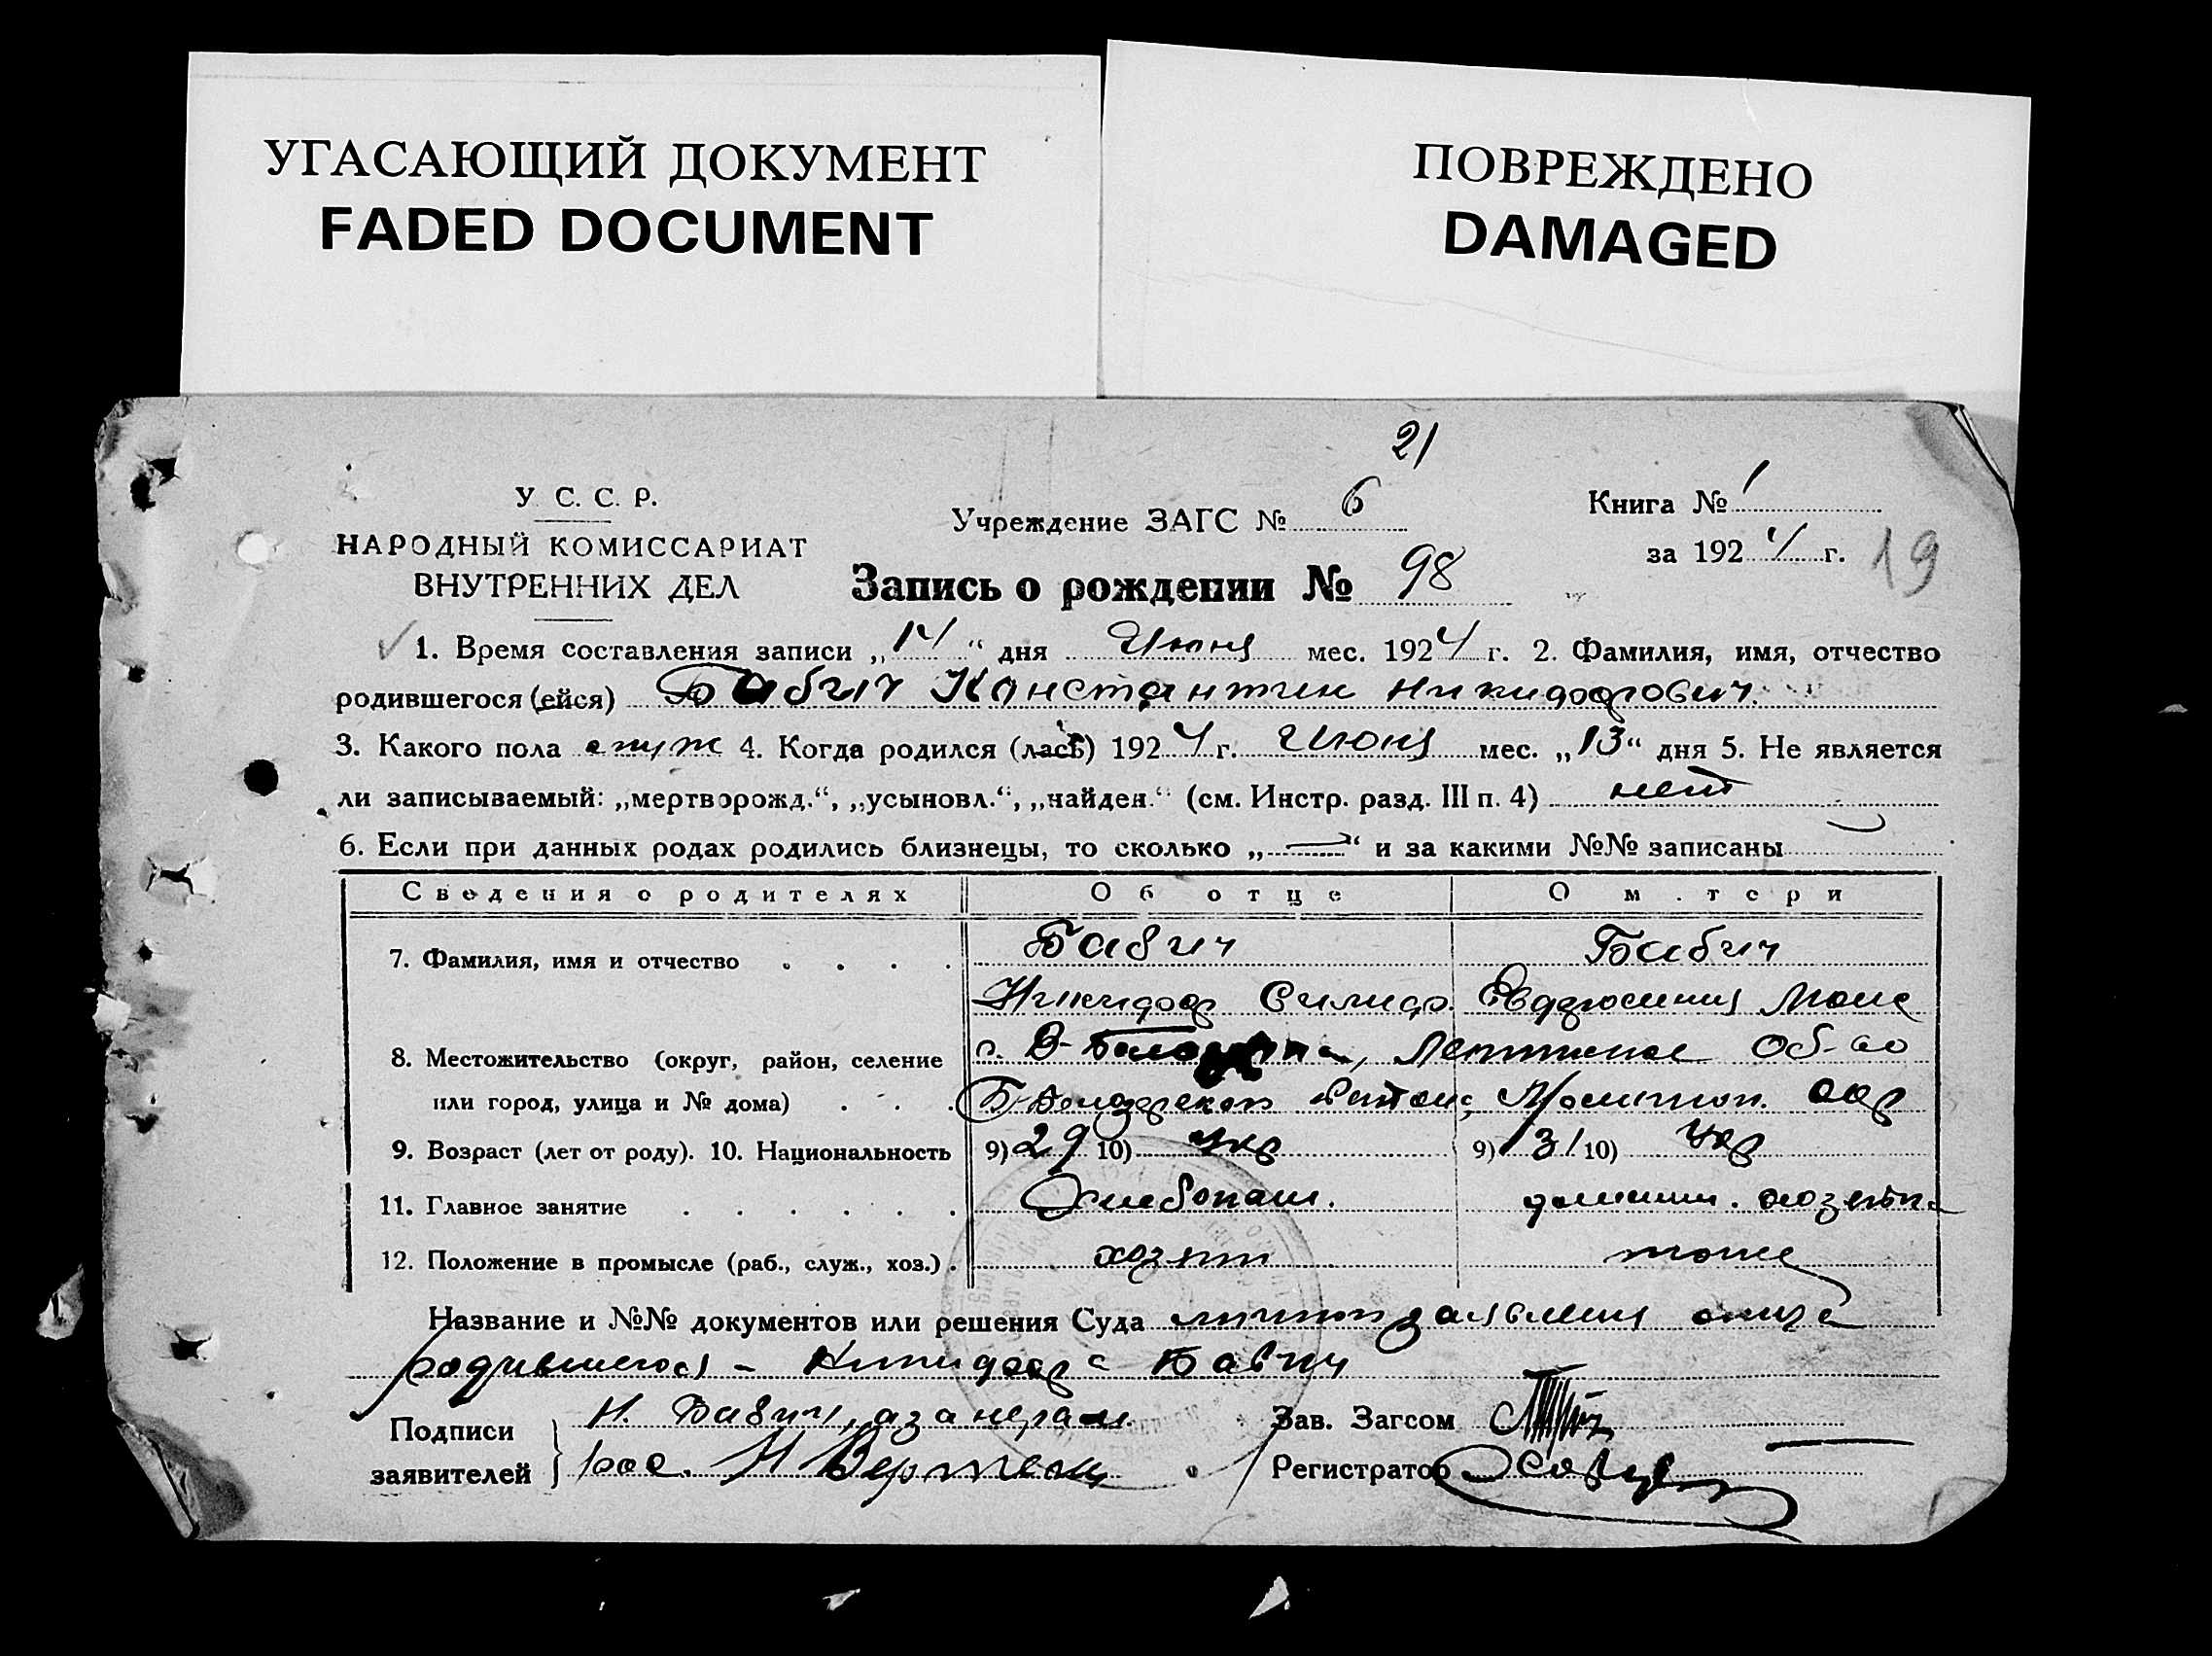 УГАСАЮЩИЙ ДОКУМЕНТ
FADED DOCUMENT
ПОВРЕЖДЕНО
DAMAGED
21
У. С. С. Р.
НАРОДНЫЙ КОМИССАРИАТ
ВНУТРЕННИХ ДЕЛ
Учреждение ЗАГС № 6
Книга № 1
за 1924 г. 19
Запись о рождении № 98
1. Время составления записи „14“ дня Июня мес. 1924 г. 2. Фамилия, имя, отчество
родившегося (ейся) Бабич Константин Никидорович
3. Какого пола муж 4. Когда родился (лась) 1924 г. Июня мес. „13“ дня 5. Не является
ли записываемый: „мертворожд.“, „усыновл.“, „найден.“ (см. Инстр. разд. III п. 4) нет
6. Если при данных родах родились близнецы, то сколько „—“ и за какими №№ записаны
Сведения о родителях Об отце О м.тери
7. Фамилия, имя и отчество . . . . Бабич Бабич
Никидор Евдросиния
8. Местожительство (округ, район, селение
или город, улица и № дома) . . .
9. Возраст (лет от роду). 10. Национальность 9) 29 10) Укр 9) 31 10) Укр
11. Главное занятие . . . . . . Хлебопаш. домашн. хозяйка
12. Положение в промысле (раб., служ., хоз.) . хозяин тоже
Название и №№ документов или решения Суда личное заявления отца
родившегося - Никидора Бабич
Подписи
заявителей
Н. Бабич, а за неграм.
рос.
Зав. Загсом
Регистратор